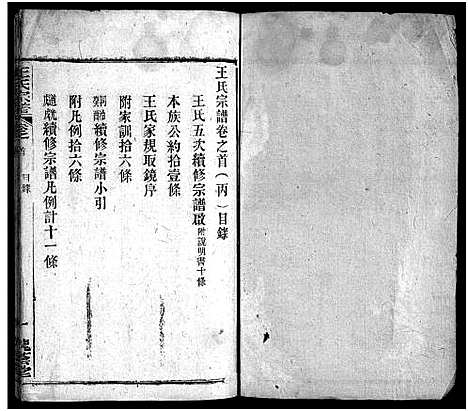 王氏宗譜卷之首(丙)目錄
王氏五次續修宗譜啟附說明書十條
本族公約拾壹條
王氏家規取鏡序
附家訓拾六條
續修宗譜小引
附凡例拾六條
續修宗譜凡例計十一條
王氏宗譜 卷之首 目錄
一